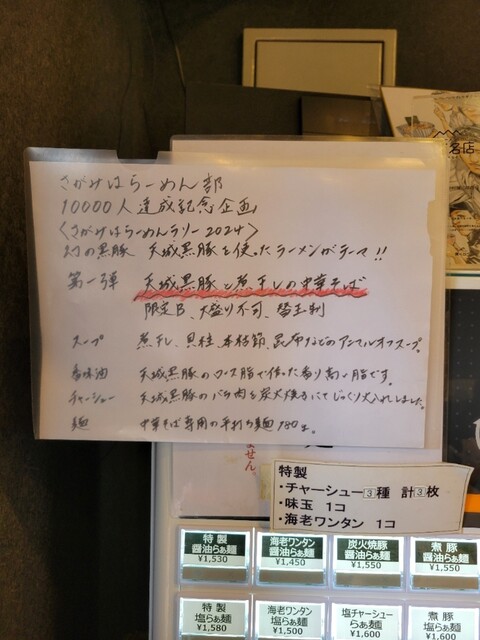 さがみはらーめん部
10000人達成記念企画
〈さがみはらーめんラリー2024〉
幻の黒豚 天城黒豚を使ったラーメンがテーマ!!
第一弾 天城黒豚と煮干しの中華そば
限定B、大盛り不可、替玉可
スープ 煮干し、貝柱、本枯節、昆布などのアニマルオフスープ。
香味油 天城黒豚のロース脂で使った香り高い脂です。
チャーシュー 天城黒豚のバラ肉を炭火焼きにてじっくり火入れしました。
麺 中華そば専用の平打ち麺180g。
ません。
名店
特製
・チャーシュー3種 計3枚
・味玉 1コ
・海老ワンタン 1コ
特製
醤油らぁ麺
¥1,530
海老ワンタン
醤油らぁ麺
¥1,450
炭火焼豚
醤油らぁ麺
¥1,550
煮豚
醤油らぁ麺
¥1,550
特製
塩らぁ麺
¥1,580
海老ワンタン
塩らぁ麺
¥1,500
塩チャーシュー
らぁ麺
¥1,600
煮豚
塩らぁ麺
¥1,600